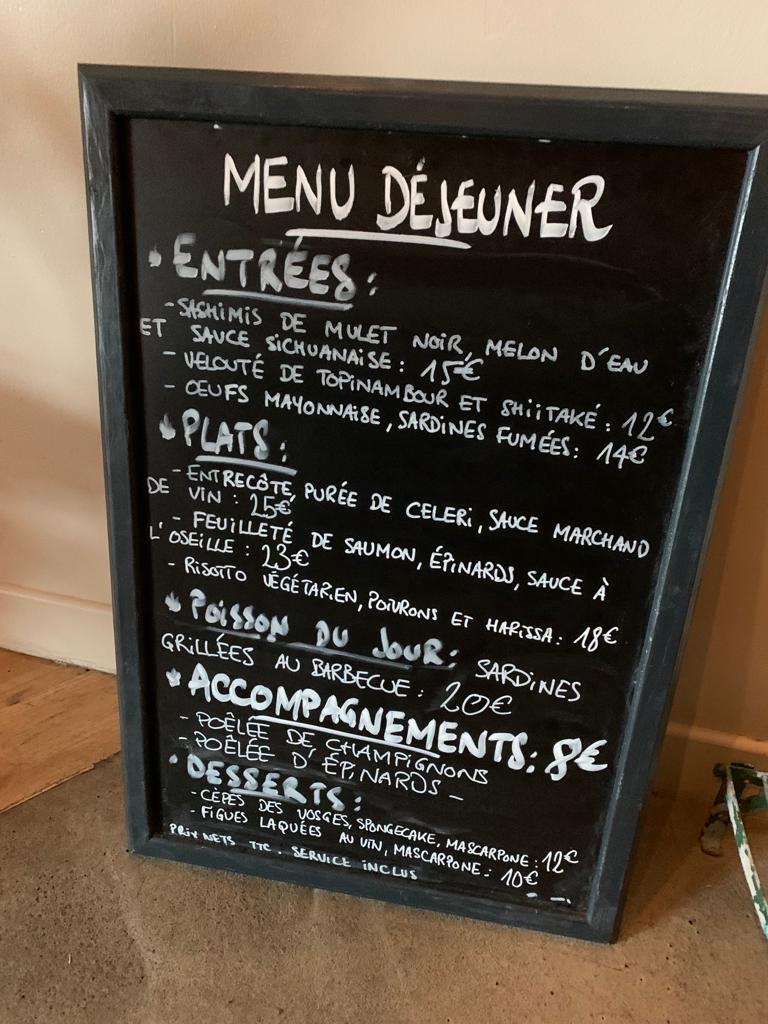 MENU DÉJEUNER
ENTRÉES :
- SASHIMIS DE MULET NOIR, MELON D'EAU
ET SAUCE SICHUANAISE : 15€
- VELOUTÉ DE TOPINAMBOUR ET SHIITAKÉ : 12€
- ŒUFS MAYONNAISE, SARDINES FUMÉES : 14€
PLATS :
- ENTRECÔTE, PURÉE DE CELERI, SAUCE MARCHAND
DE VIN : 25€
- FEUILLETÉ DE SAUMON, ÉPINARDS, SAUCE À
L'OSEILLE : 23€
- RISOTTO VÉGÉTARIEN, POIVRONS ET HARISSA : 18€
POISSON DU JOUR : SARDINES
GRILLÉES AU BARBECUE : 20€
ACCOMPAGNEMENTS : 8€
- POÊLÉE DE CHAMPIGNONS
- POÊLÉE D'ÉPINARDS -
DESSERTS :
- CÈPES DES VOSGES, SPONGECAKE, MASCARPONE : 12€
- FIGUES LAQUÉES AU VIN, MASCARPONE : 10€
PRIX NETS TTC. SERVICE INCLUS